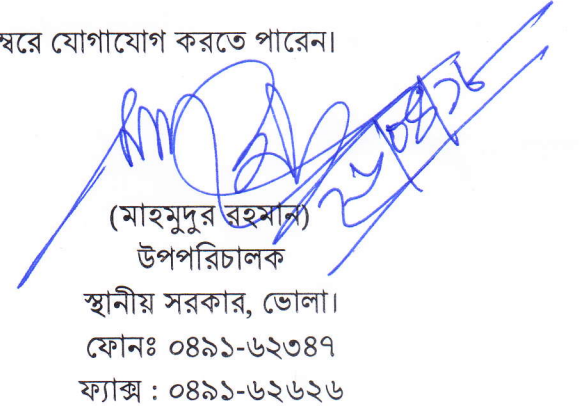 ম্বরে যোগাযোগ করতে পারেন।
(মাহমুদুর রহমান)
উপপরিচালক
স্থানীয় সরকার, ভোলা।
ফোনঃ ০৪৯১-৬২৩৪৭
ফ্যাক্স : ০৪৯১-৬২৬২৬